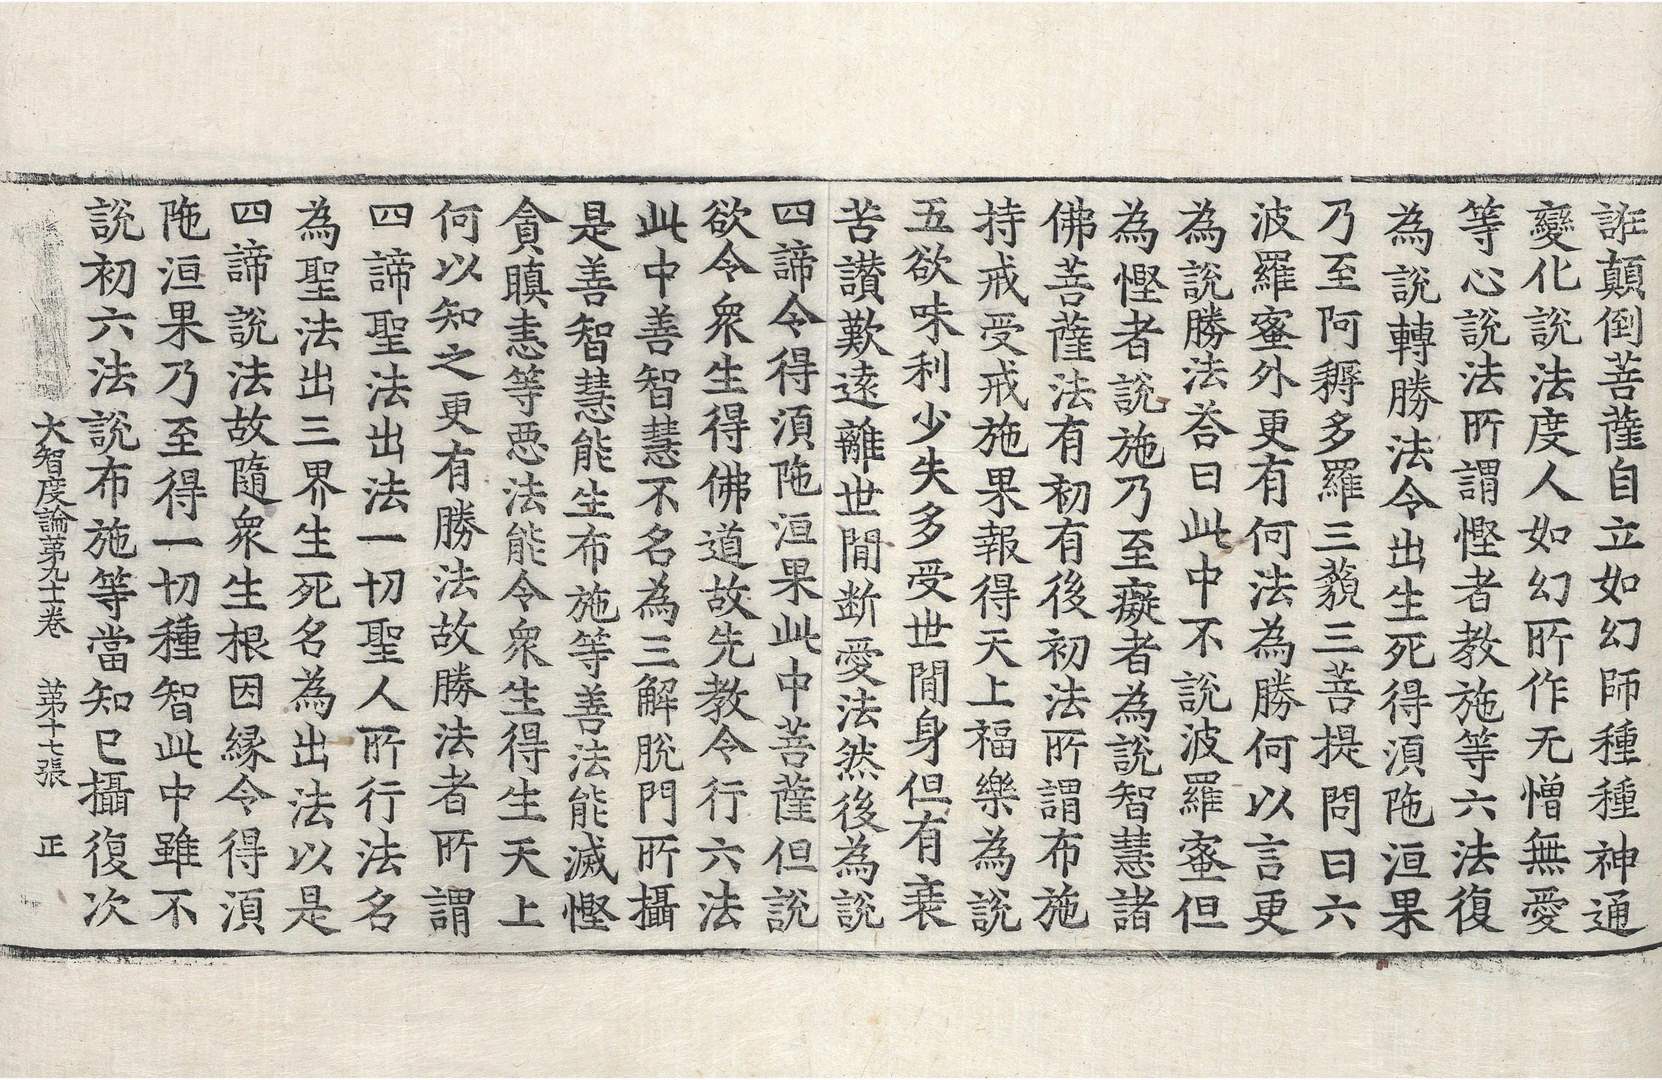 誑顛倒菩薩自立如幻師種種神通
變化說法度人如幻所作无憎無愛
等心說法所謂慳者教施等六法復
為說轉勝法令出生死得湏陁洹果
乃至阿耨多羅三藐三菩提問曰六
波羅蜜外更有何法為勝何以言更
為說勝法荅曰此中不說波羅蜜但
為慳者說施乃至癡者為說智慧諸
佛菩薩法有初有後初法所謂布施
持戒受戒施果報得天上福樂為說
五欲味利少失多受世閒身但有衰
苦讃歎遠離世閒断愛法然後為說
四諦令得湏陁洹果此中菩薩但說
欲令衆生得佛道故先教令行六法
此中善智慧不名為三解脫門所攝
是善智慧能生布施等善法能滅慳
貪瞋恚等惡法能令衆生得生天上
何以知之更有勝法故勝法者所謂
四諦聖法出法一切聖人所行法名
為聖法出三界生死名為出法以是
四諦說法故隨衆生根因緣令得湏
陁洹果乃至得一切種智此中雖不
說初六法說布施等當知已攝復次
大智度論苐九十二卷 苐十七張 正